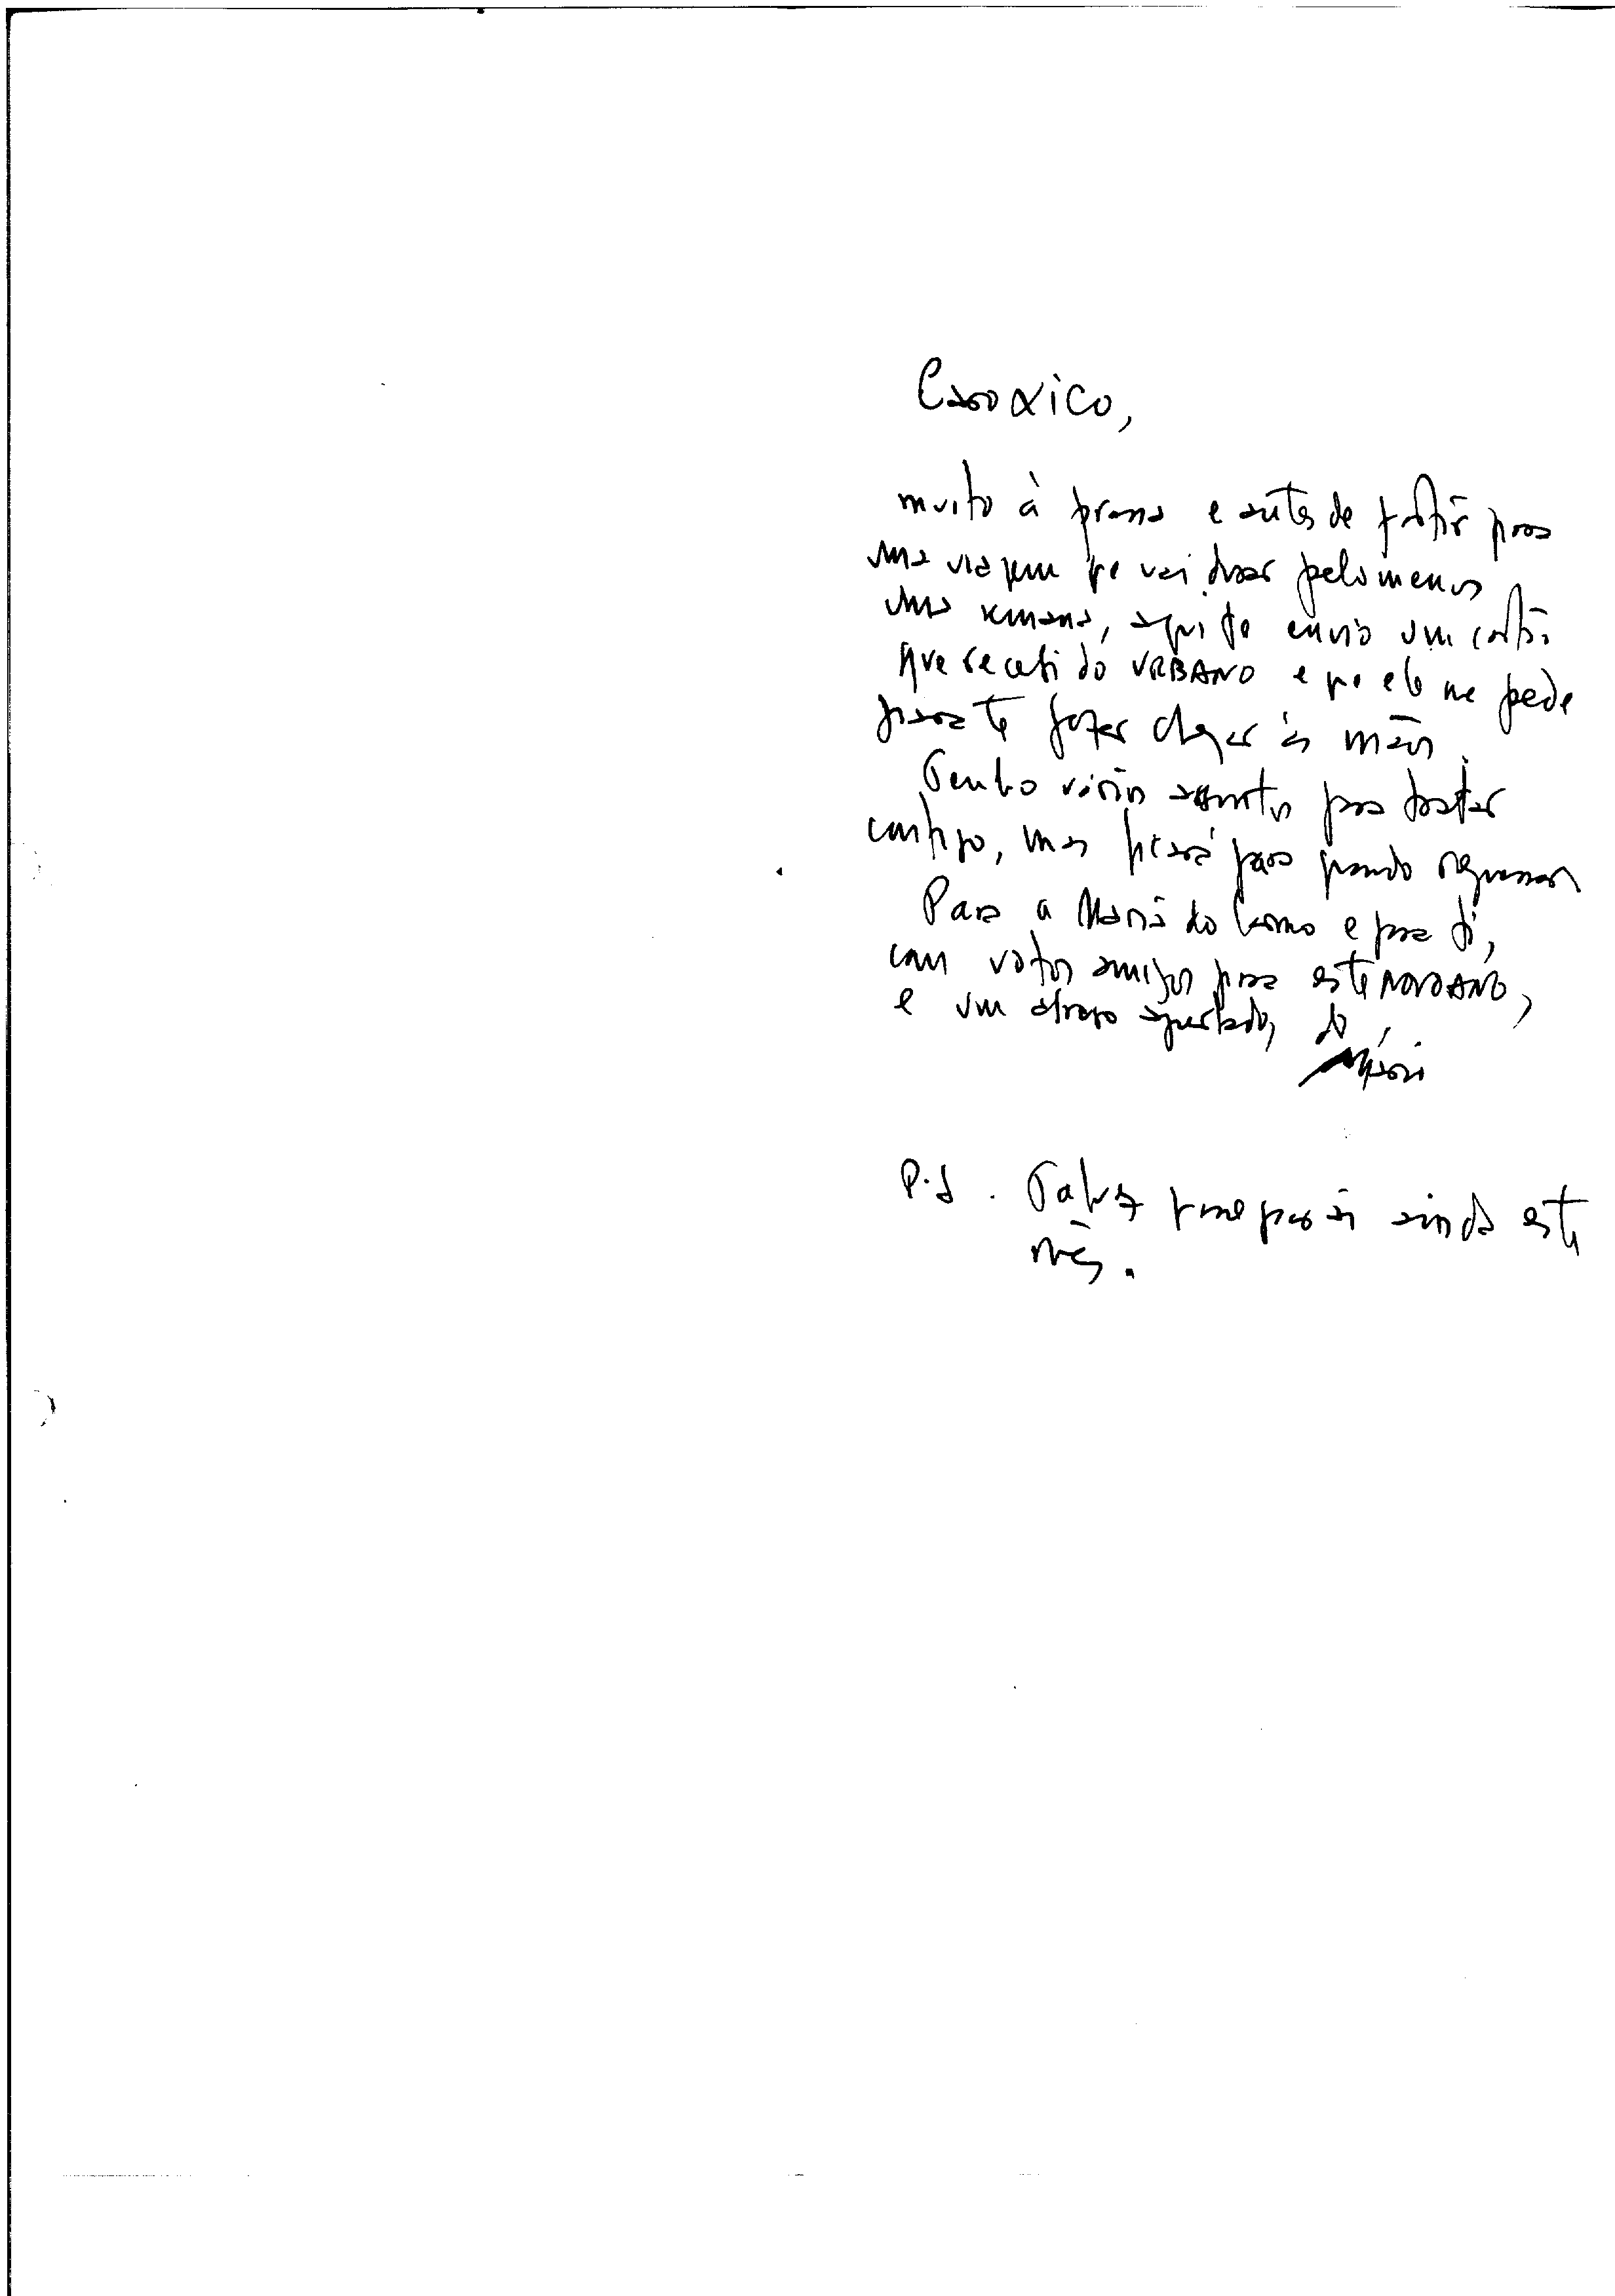 Caro Xico,
muito à pressa e antes de partir para
uma viagem que vai durar pelo menos
uma semana, aqui te envio um cartão
que recebi do URBANO e que ele me pede
para te fazer chegar às mãos.
Tenho vários assuntos para tratar
contigo, mas ficará para quando regressar
Para a Maria do Carmo e para ti,
com votos amigos para este NOVO ANO,
e um abraço apertado, do
P.S. Talvez passe por aí ainda este
mês.